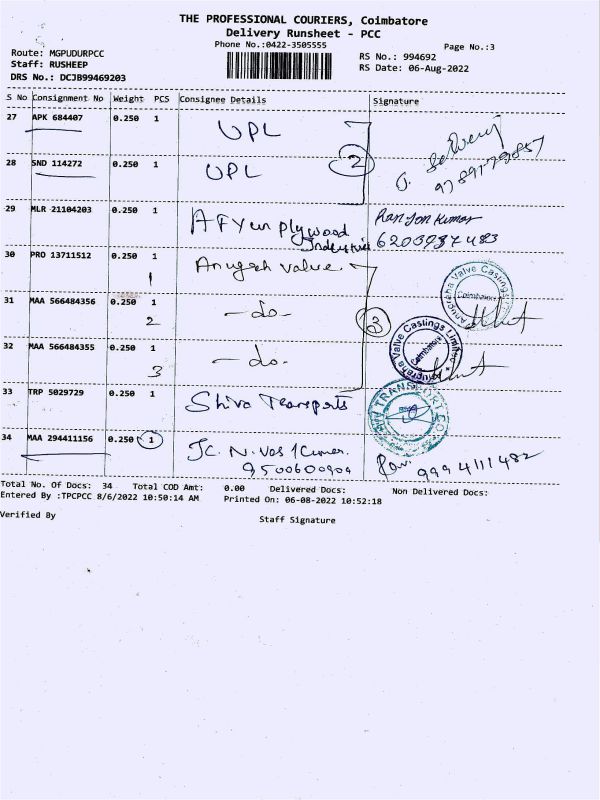 THE PROFESSIONAL COURIERS, Coimbatore
Delivery Runsheet - PCC
Phone No.:0422-3505555
Page No.:3
Route: MGPUDURPCC
RS No.: 994692
Staff: RUSHEEP
RS Date: 06-Aug-2022
DRS No.: DCJB99469203
S No Consignment No Weight PCS Consignee Details Signature
27 APK 684407 0.250 1 UPL
28 SND 114272 0.250 1 UPL
2
29 MLR 21104203 0.250 1 plywood
30 PRO 13711512 0.250 1 valve
1
31 MAA 566484356 0.250 1 -do-
2
3
32 MAA 566484355 0.250 1 -do-
3
Anugraha Valve Castings Limited
Coimbatore
33 TRP 5029729 0.250 1 Shiva Transports
34 MAA 294411156 0.250 1
9500600909
9994111482
Total No. Of Docs: 34 Total COD Amt: 0.00 Delivered Docs: Non Delivered Docs:
Entered By :TPCPCC 8/6/2022 10:50:14 AM Printed On: 06-08-2022 10:52:18
Verified By
Staff Signature